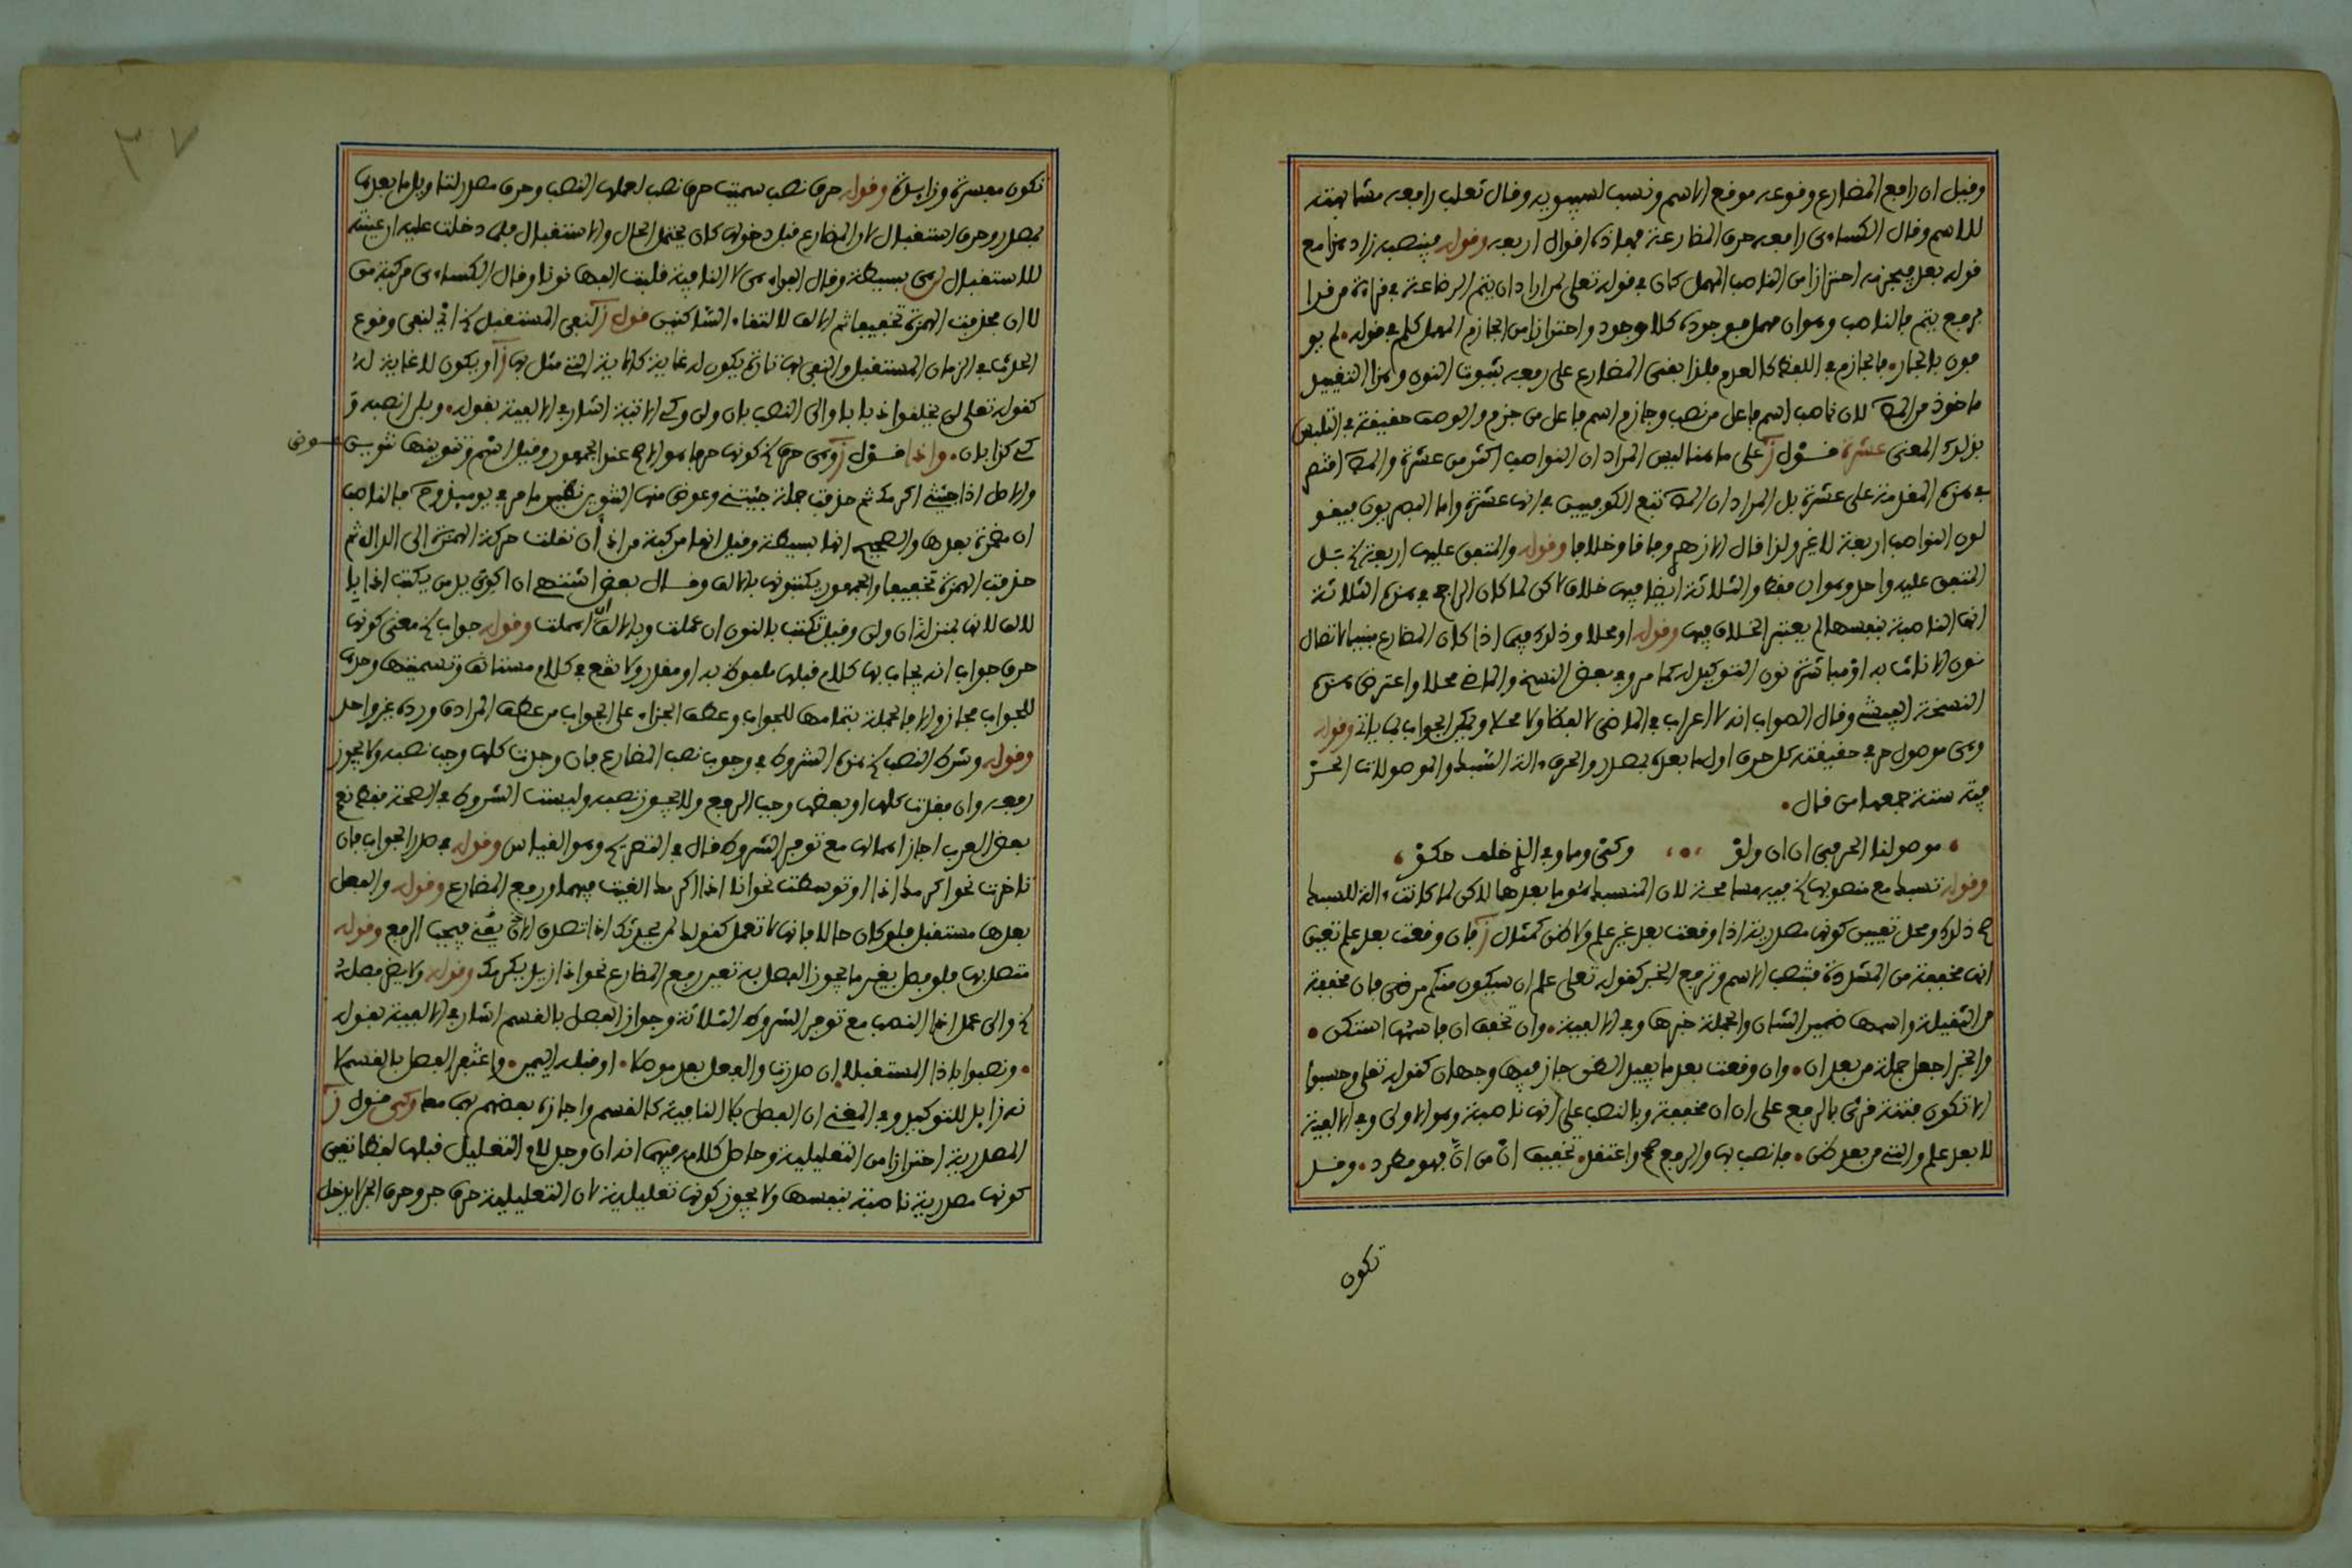 وقيل ان رابع المضارع وقوعه موقع الاسم ونسب لسيبويه وقال ثعلب رابعه مشابهته
للاسم وقال الكساءي رافعه حرف المضارعة فهاذه اقوال اربعه وقوله فينصبه زاد هنا مع
قوله بعد فيجزمه احترازا من الناصب المهمل كان في قوله تعلى لمن اراد ان يتم الرضاعة في قراءة من قرا
برفع يتم فالناصب وهو ان مهمل فوجوده كلا وجود واحترازا من الجازم المهمل كلم في قوله لم يو
فون بالجار فالجازم في اللفظ كالعدم فلذا بقى المضارع على رفعه بثبوت النون وهذا التقييد
ماخوذ من لان ناصب اسم فاعل من نصب وجازم اسم فاعل من جزم والوصف حقيقة في المتلبس
بذلك المعنى عشرة قول ز على ما هنا ليس المراد ان النواصب اكثر من عشرة واقتصر
في هذه المقدمة على عشرة بل المراد ان تبع الكوفيين في انها عشرة واما البصريون فيقو
لون النواصب اربعة لا غير ولذا قال الازهري وفاقا وخلافا وقوله والمتفق عليه اربعة بل
المتفق عليه واحد وهو ان فقط والثلاثة ايضا فيها خلاف لاكن لما كان الراجح في هذه الثلاثة
انها الناصبة بنفسها لم يعتبر الخلاف فيها وقوله او محلا وذلك فيما اذا كان المضارع مبنيا لاتصال
نون الاناث به او مباشرة نون التوكيد له كما مر وفي بعض النسخ والماضي محلا واعترض هذه
النسخة الفيشي وقال الصواب انه لا اعراب في الماضي لا لفظا ولا محلا ويمكن الجواب بما ياتي وقوله
وهي موصول حرفي حقيقته كل حرف اول ما بعده بمصدر والحرف الة السبك والموصولات الحر
فية ستة جمعها من قال
موصولنا الحرفي ان ان ولو وكي وما وفي الذي خلف حكوا
وقوله تسبك مع منصوبها فيه مسامحة لان المنسبك هو ما بعدها لاكن لما كانت الة للسبك
صح ذلك ومحل تعيين كونها مصدرية اذا وقعت بعد غير علم ولا ظن كمثال ز فان وقعت بعد علم تعين
انها مخففة من المشددة فتنصب الاسم وترفع الخبر كقوله تعلى علم ان سيكون منكم مرضى فان مخففة
من الثقيلة واسمها ضمير الشان والجملة خبرها وفي الالفية وان تخفف ان فاسمها استكن
والخبر اجعل جملة من بعد ان وان وقعت بعد ما يفيد الظن جاز فيها وجهان كقوله تعلى وحسبوا
الا تكون فتنة قرئ بالرفع على ان ان مخففة وبالنصب على انها ناصبة وهو الاولى وفي الالفية
لا بعد علم والتي من بعد ظن فانصب بها والرفع صحح واعتقد تخفيفها من ان فهو مطرد وقد
تكون
تكون مفسرة وزايدة وقوله حرف نصب سميت حرف نصب لعملها النصب وحرف مصدر لتاويل ما بعدها
بمصدر وحرف استقبال لان المضارع قبل دخولها كان يحتمل الحال والاستقبال فلما دخلت عليه ان عينته
للاستقبال لن هي بسيطة وقال الفراء هي لا النافية قلبت الفها نونا وقال الكساءي مركبة من
لا ان فحذفت الهمزة تخفيفا ثم الالف لالتقاء الساكنين قول ز لنفي المستقبل اي لنفي وقوع
الحدث في الزمان المستقبل والنفي بها تارة يكون له غاية كالاية التي مثل بها ز او يكون لا غاية له
كقوله تعلى لن يخلقوا ذبابا والى النصب بان ولن وكي الاتية اشار في الالفية بقوله وبلن انصبه و
كي كذا بان واذا قول ز وهي حرف كونها حرفا هو الاصح عند الجمهور وقيل اسم وتنوينها تنوين عوض
والاصل اذا جئتني اكرمك ثم حذفت جملة جئتني وعوض منها التنوين نظير ما مر في يوميذ وح فالناصب
ان مضمرة بعدها والصحيح انها بسيطة وقيل انها مركبة من اذ ان نقلت حركة الهمزة الى الذال ثم
حذفت الهمزة تخفيفا والجمهور يكتبونها بالالف وقال بعض اشتهي ان اكوي يد من يكتب اذا با
لالف لانها بمنزلة ان ولن وقيل تكتب بالنون ان عملت وبالالف ان اهملت وقوله جواب معنى كونها
حرف جواب انه يجاب بها كلام قبلها ملفوظ به او مقدر ولا تقع في كلام مستانف وتسميتها وحدها
للجواب مجاز والا فالجملة بتمامها للجواب وعطف الجزاء على الجواب من عطف المرادف ورده غير واحد
وقوله وشرط النصب هذه الشروط في وجوب نصب المضارع فان وجدت كلها وجب نصبه ولا يجوز
رفعه وان فقدت كلها او بعضها وجب الرفع ولا يجوز نصبه وليست الشروط في الصحة فقط نعم
بعض العرب اجاز اهمالها مع توفر الشروط قال في التصريح وهو القياس وقوله في صدر الجواب فان
تاخرت نحو اكرمك اذا او توسطت نحو انا اذا اكرمك الغيت فيهما ورفع المضارع وقوله والفعل
بعدها مستقبل فلو كان حالا فانها لا تعمل كقولك لمن يحدثك اذا تصدق لانه يقتضي فيجب الرفع وقوله
متصل بها فلو فصل بغير ما يجوز الفصل به تعين رفع المضارع نحو اذا زيد يكرمك وقوله ولا يضر فصله
والى عمل اذا النصب مع توفر الشروط الثلاثة وجواز الفصل بالقسم اشار في الالفية بقوله
ونصبوا باذا المستقبلا ان صدرت والفعل بعد موصلا او قبله اليمين واغتفر الفصل بالقسم لا
نه زايد للتوكيد وفي المغني ان الفصل بلا النافية كالقسم واجازه بعضهم بهما معا وكي قول ز
المصدرية احترازا من التعليلية وحاصل كلامه فيها انه ان وجد لام التعليل قبلها لفظا تعين
كونها مصدرية ناصبة بنفسها ولا يجوز كونها تعليلية لان التعليلية حرف جر وحرف الجر لا يدخل